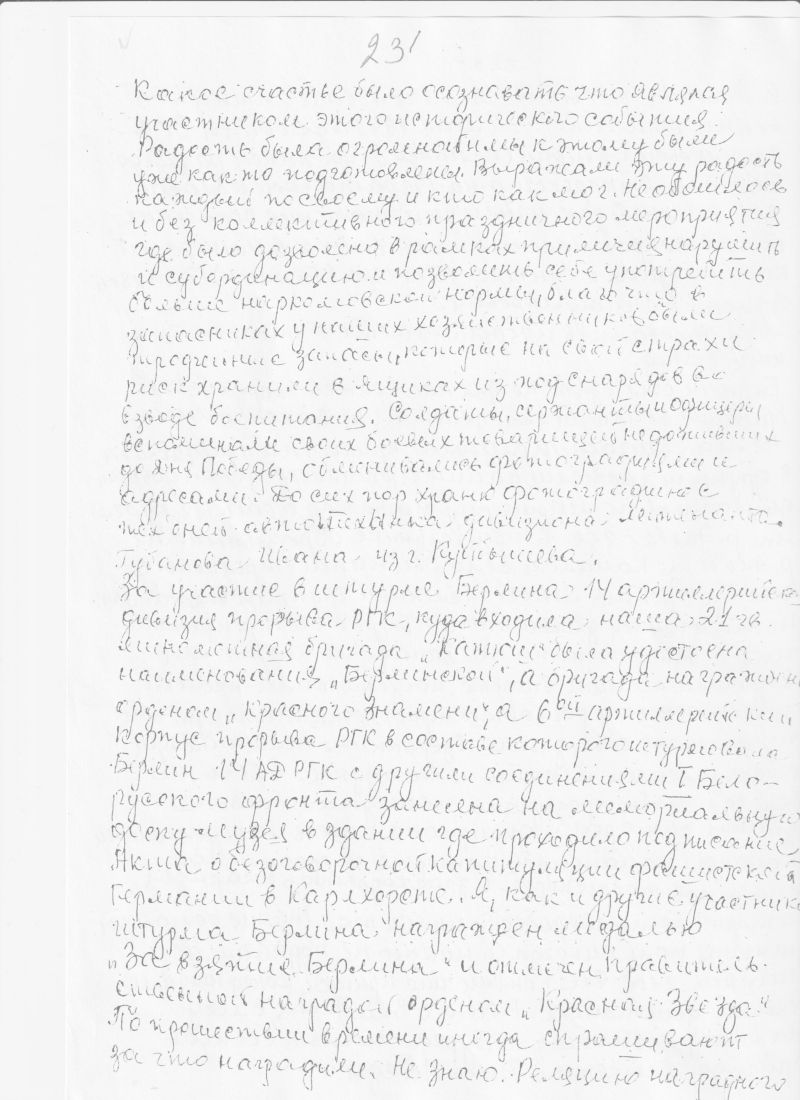 231
Какое счастье было осознавать что являлся
участником этого исторического события.
Радость была огромна но мы к этому были
уже как то подготовлены. Выражали эту радость
каждый по своему и кто как мог. Не обошлось
и без коллективного праздничного мероприятия
где было дозволено в рамках приличия нарушить
и субординацию и позволить себе употребить
больше наркомовской нормы, благо что в
запасниках у наших хозяйственников были
трофейные запасы, которые на свой страх и
риск хранили в ящиках из под снарядов во
взводе боепитания. Солдаты, сержанты и офицеры
вспоминали своих боевых товарищей не доживших
до дня Победы, обменивались фотографиями и
адресами. До сих пор храню фотографию с
тех дней автотехника дивизиона лейтенанта
Губанова Ивана из г. Куйбышева.
За участие в штурме Берлина 14 артиллерийская
дивизия прорыва РГК, куда входила наша 21 гв.
минометная бригада „Катюш" была удостоена
наименования „Берлинской", а бригада награжден
орденом „Красного Знамени", а 6ой артиллерийский
корпус прорыва РГК в составе которого штурмовала
Берлин 14 АД РГК с другими соединениями I Бело-
русского фронта занесена на мемориальную
доску музея в здании где проходило подписание
Акта о безоговорочной капитуляции фашистской
Германии в Карлхорсте. Я, как и другие участники
штурма Берлина награжден медалью
„За взятие Берлина" и отмечен правитель-
ственной наградой орденом „Красная Звезда"
По прошествии времени иногда спрашивают
за что наградили. Не знаю. Реляцию наградного